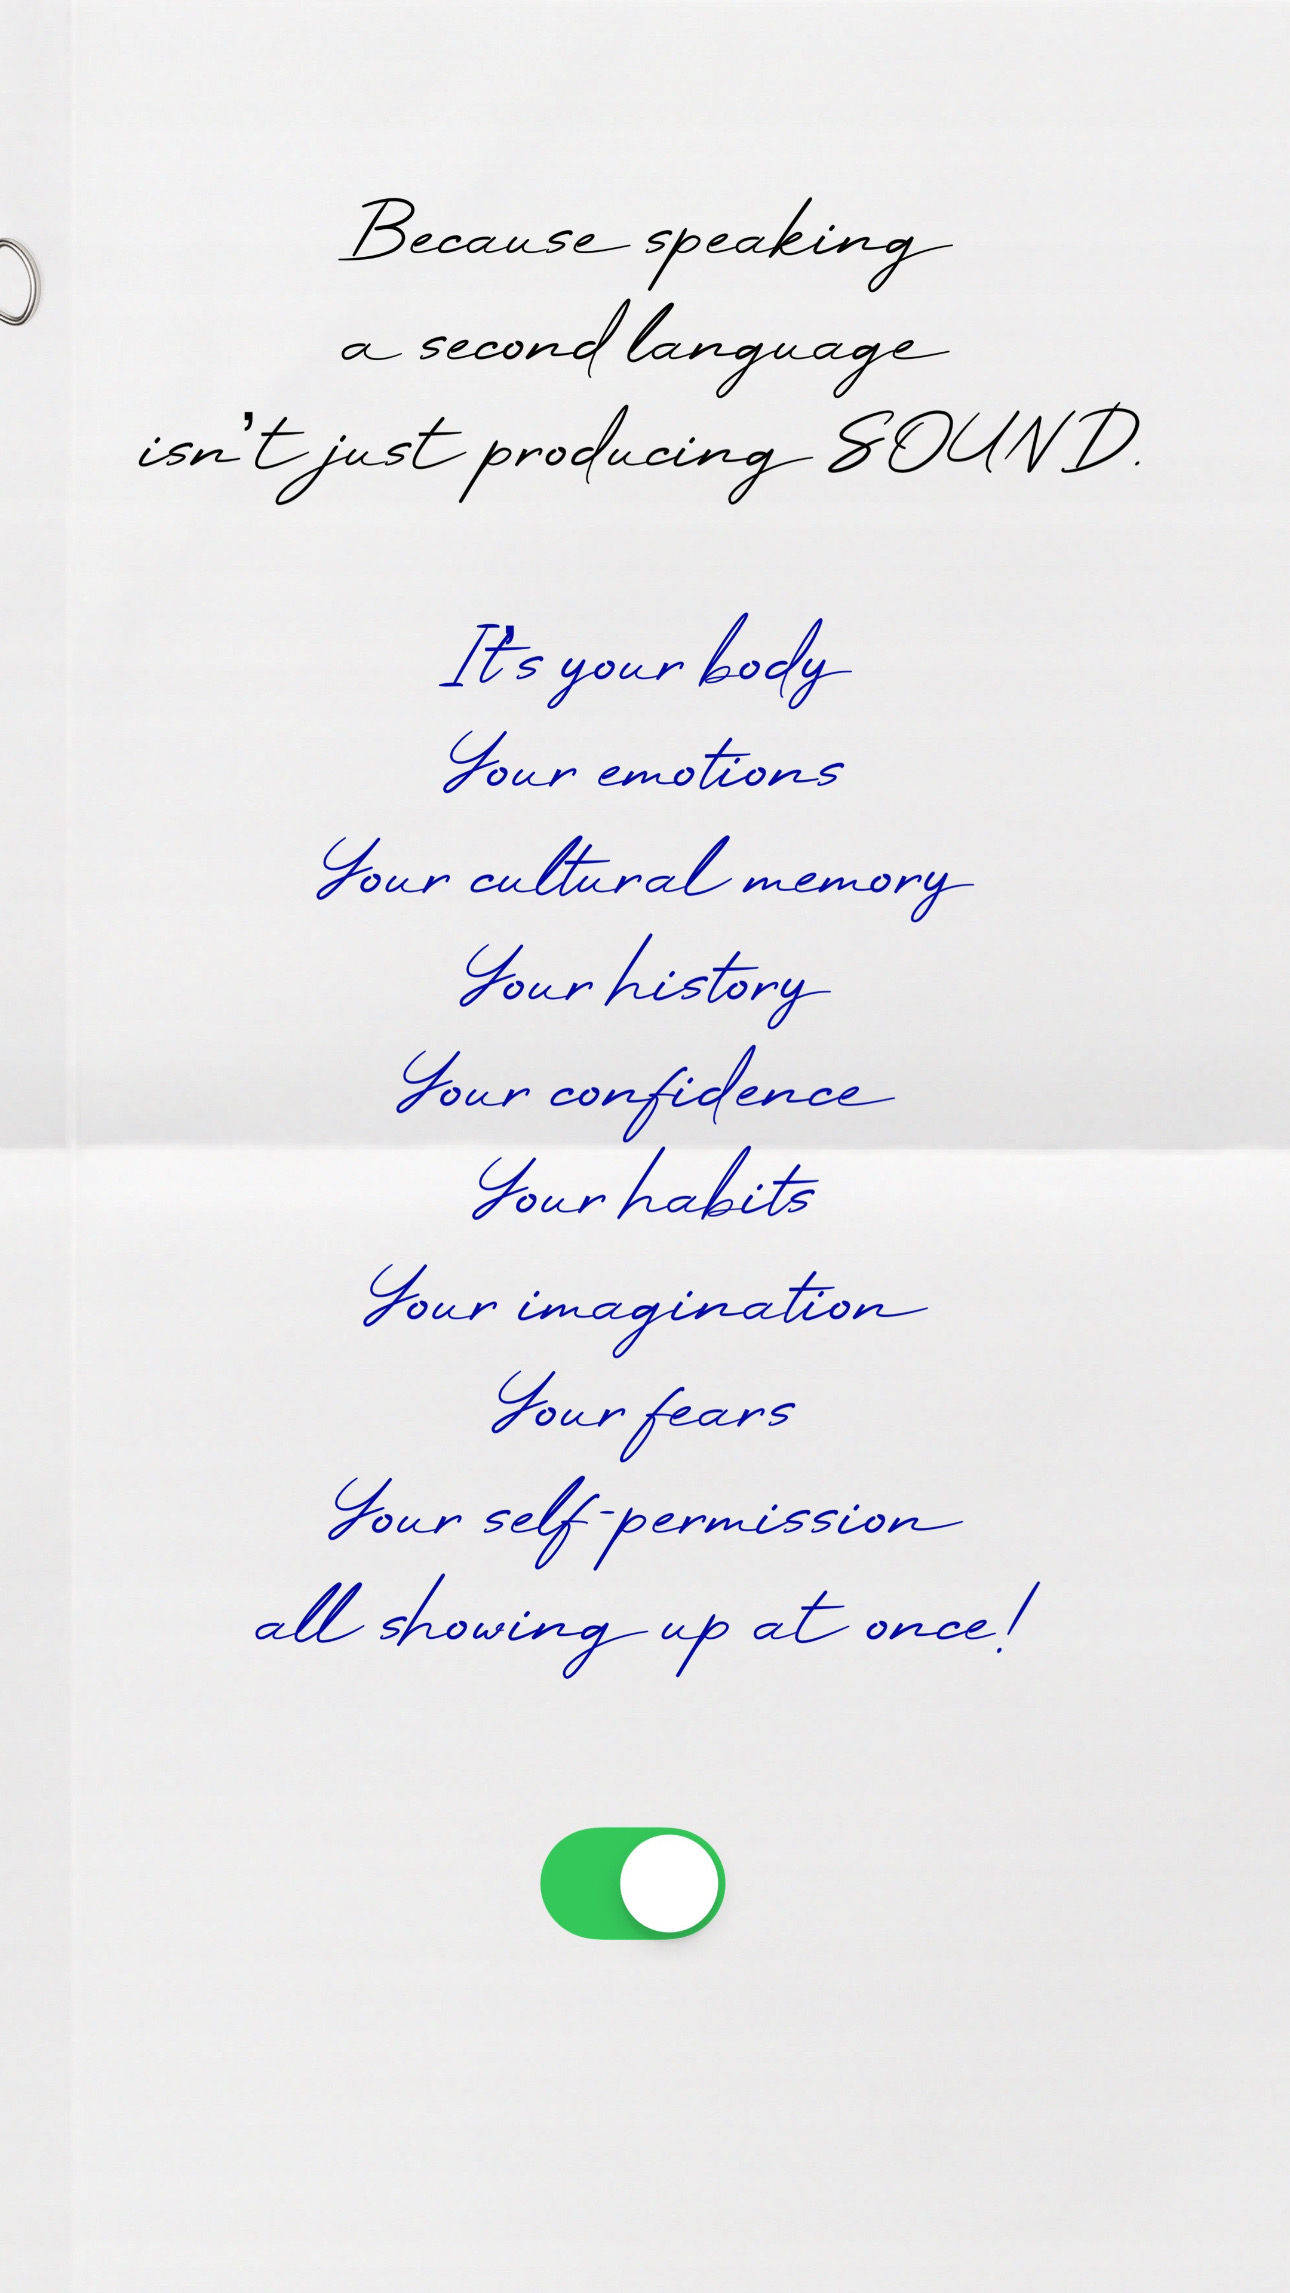 Because speaking
a second language
isn't just producing SOUND.
It's your body
Your emotions
Your cultural memory
Your history
Your confidence
Your habits
Your imagination
Your fears
Your self-permission
all showing up at once!